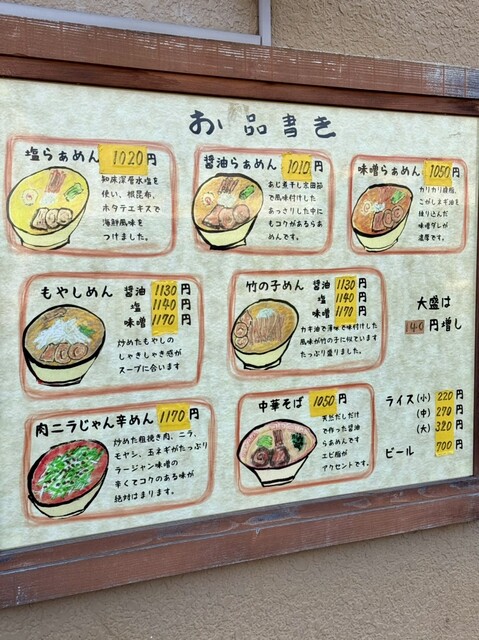 お品書き
塩らぁめん 1020円
知床深層水塩を
使い、根昆布、
ホタテエキスで
海鮮風味を
つけました。
醤油らぁめん 1010円
あじ煮干し宗田節
で風味付けした
あっさりした中に
もコクがあるらあ
めんです。
味噌らぁめん 1050円
カリカリ背脂、
こがしネギ油を
練り込んだ
味噌ダレが
濃厚です。
もやしめん 醤油 1130円
塩 1140円
味噌 1170円
炒めたもやしの
しゃきしゃき感が
スープに合います
竹の子めん 醤油 1130円
塩 1140円
味噌 1170円
カキ油で薄味で味付けした
風味が竹の子に似ています
たっぷり盛りました。
大盛は
140円増し
肉ニラじゃん辛めん 1170円
炒めた粗挽き肉、ニラ、
モヤシ、玉ネギがたっぷり
ラージャン味噌の
辛くてコクのある味が
絶対はまります。
中華そば 1050円
天然だしだけ
で作った醤油
らあめんです
エビ脂が
アクセントです。
ライス(小) 220円
(中) 270円
(大) 320円
ビール 700円